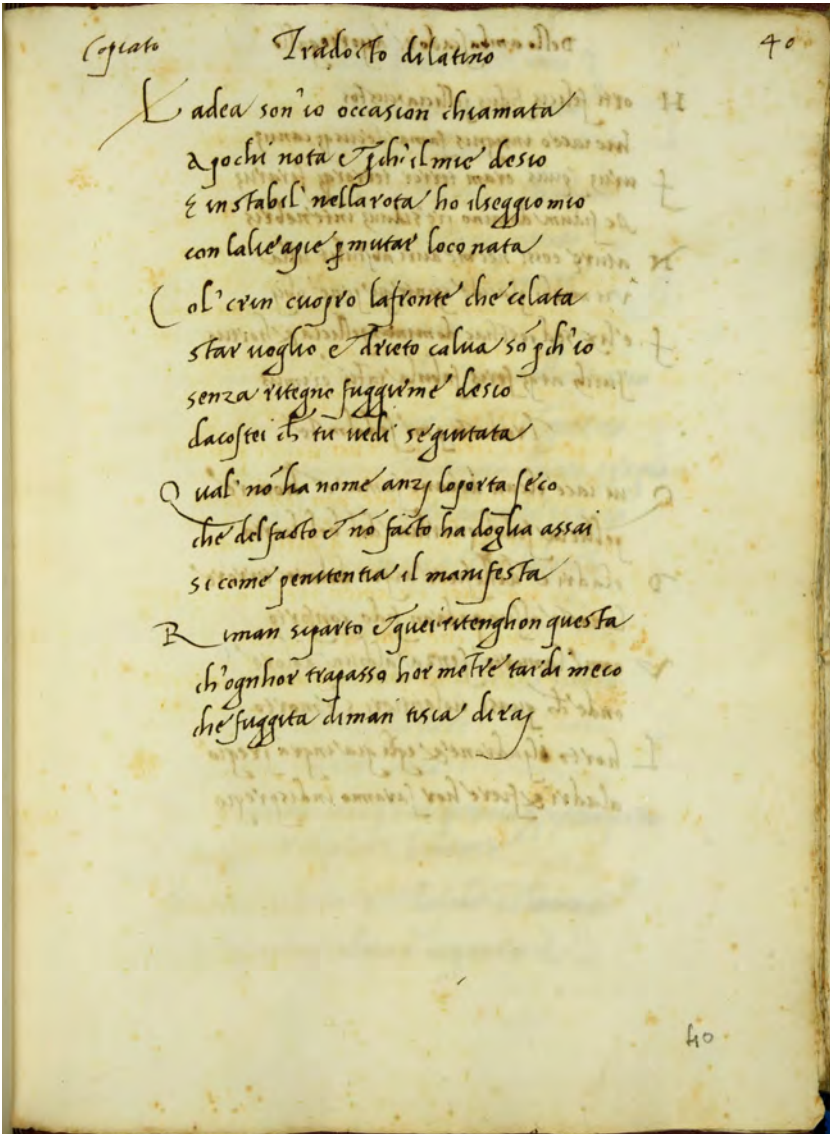 Copiato Tradocto di latino 40
L adea son'io occasion chiamata
a pochi nota et p̄ch'il mie desio
È instabil' nella rota ho il seggio mio
con lalie apie p̱ mutar loco nata
C ol' crin cuopro lafronte che celata
star uoglio e drieto calua sō p̱ch'io
senza ritegno fuggirme desio
dacostei ch̄ tu uedi seguitata
Q ual' nō ha nome anzj loporta seco
che del facto et nō facto ha doglia assai
si come penitentia il manifesta
R iman siparto et quei ritenghon questa
ch'ognhor trapasso hor mētre tardi meco
che fuggita diman tisia diraj
40